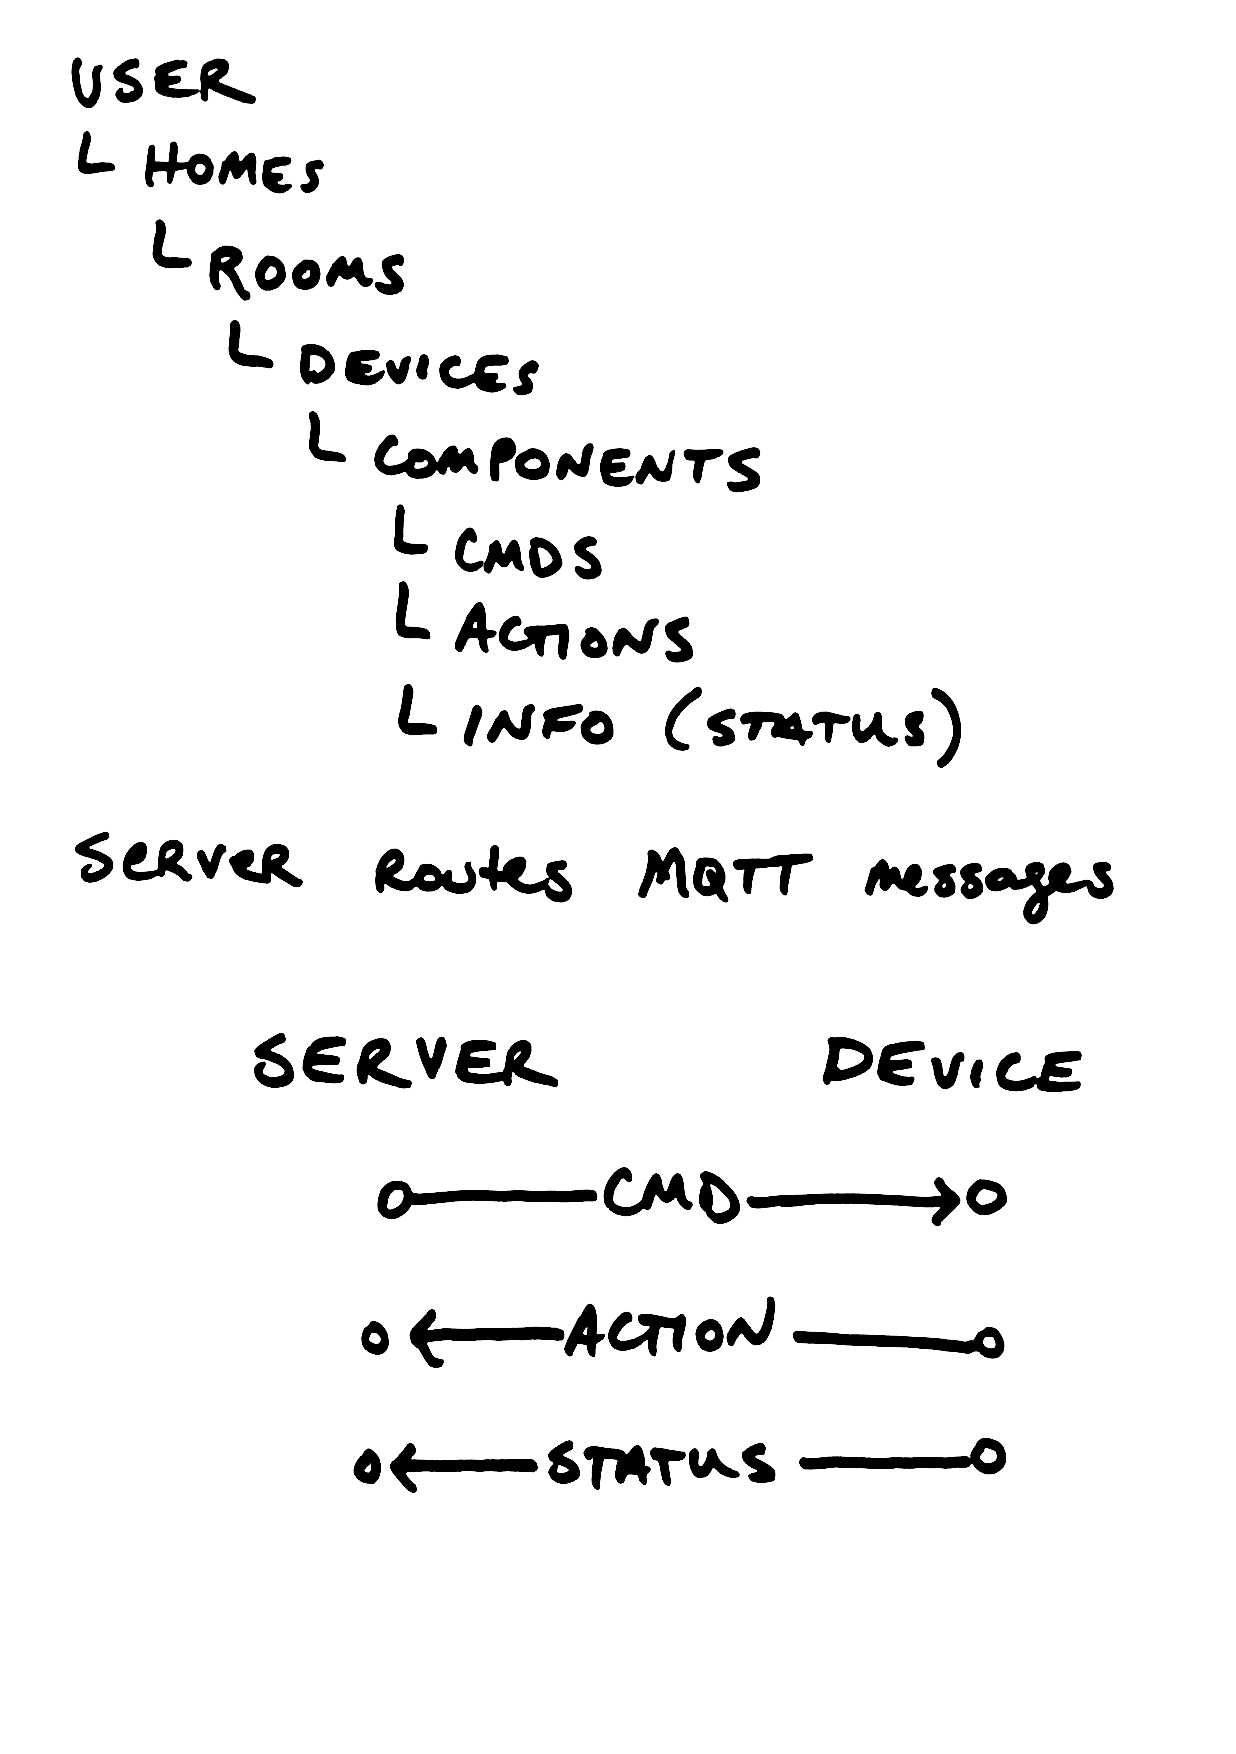 USER
HOMES
ROOMS
DEVICES
COMPONENTS
CMDS
ACTIONS
INFO (STATUS)
SERVER Routes MQTT messages
SERVER DEVICE
CMD
ACTION
STATUS